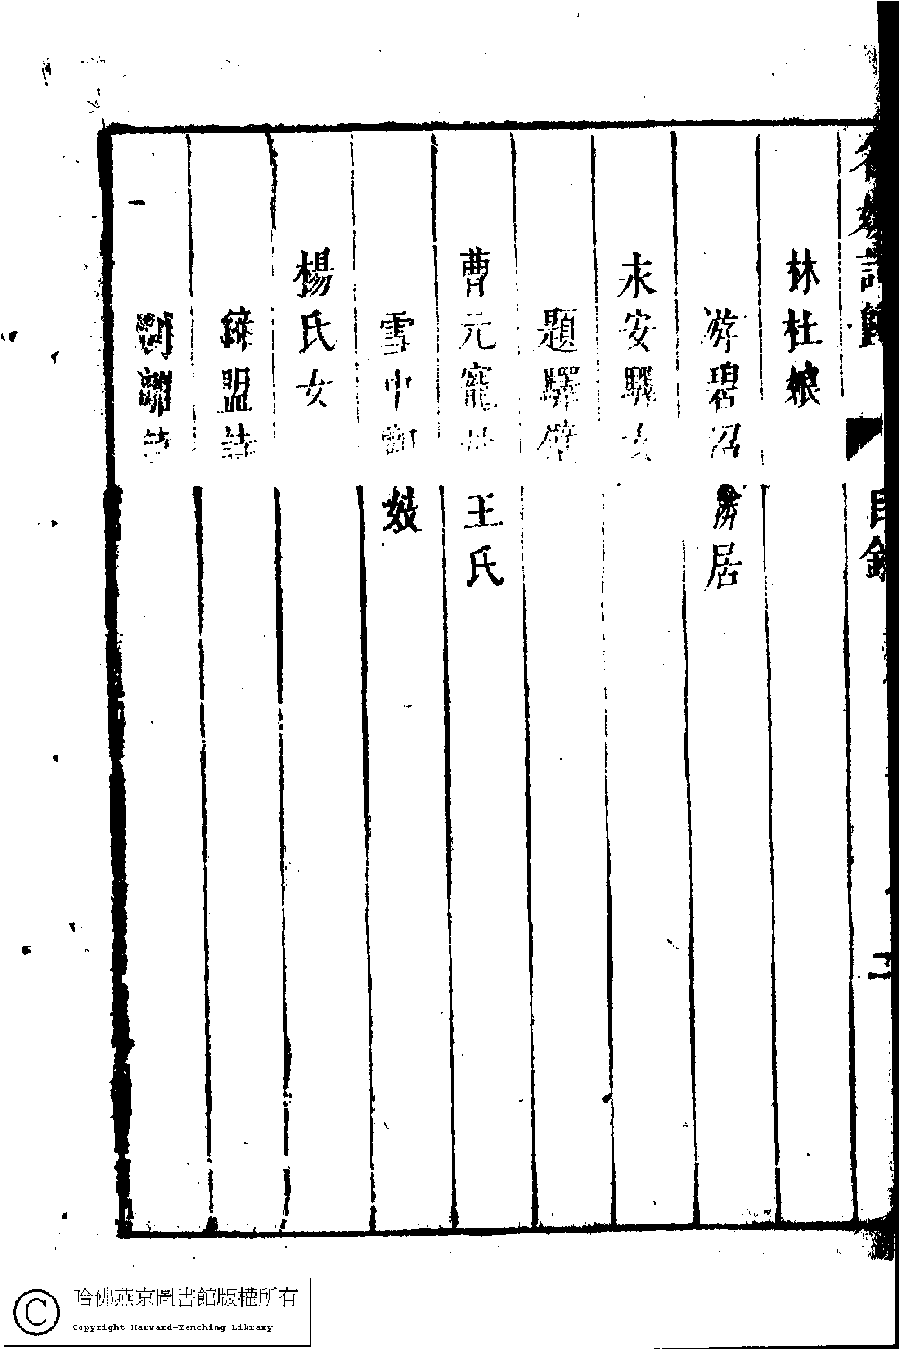 名媛詩歸 目錄
林杜娘
游碧沼勝居
永安驛女
題驛壁
曹元寵母王氏
雪中觀妓
楊氏女
辭盟詩
附謝詩
哈佛燕京圖書館版權所有
Copyright Harvard-Yenching Library